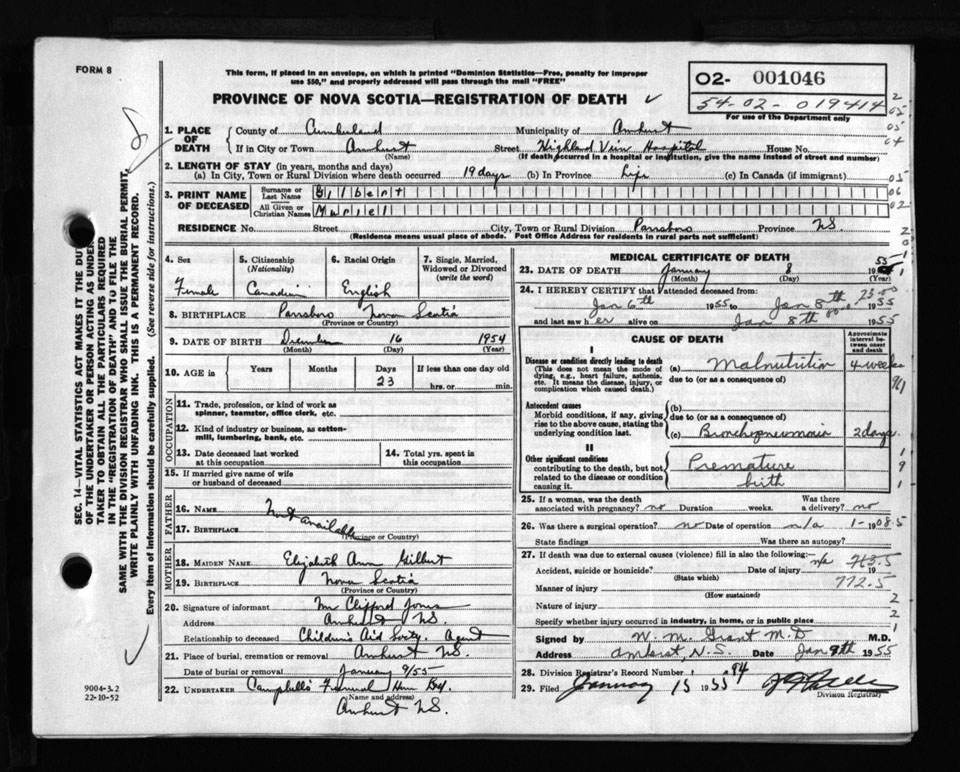 FORM 8
This form, if placed in an envelope, on which is printed "Dominion Statistics—Free, penalty for improper
use $50," and properly addressed will pass through the mail "FREE"
PROVINCE OF NOVA SCOTIA—REGISTRATION OF DEATH ✓
02- 001046
54-02-019414
For use of the Department only
1. PLACE OF DEATH
County of Cumberland Municipality of Amherst
If in City or Town Amherst Street Highland View Hospital House No.
(Name) (If death occurred in a hospital or institution, give the name instead of street and number)
2. LENGTH OF STAY (in years, months and days)
(a) In City, Town or Rural Division where death occurred 19 days (b) In Province Life (c) In Canada (if immigrant)
3. PRINT NAME OF DECEASED
Surname or Last Name Gilbert
All Given or Christian Names Muriel
RESIDENCE No. Street City, Town or Rural Division Parrsboro Province N.S.
(Residence means usual place of abode. Post Office Address for residents in rural parts not sufficient)
4. Sex
Female
5. Citizenship
(Nationality)
Canadian
6. Racial Origin
English
7. Single, Married, Widowed or Divorced
(write the word)
8. BIRTHPLACE Parrsboro Nova Scotia
(Province or Country)
9. DATE OF BIRTH December 16 1954
(Month) (Day) (Year)
10. AGE in Years Months Days 23 If less than one day
hrs. or min.
OCCUPATION
11. Trade, profession, or kind of work as
spinner, teamster, office clerk, etc.
12. Kind of industry or business, as cotton-
mill, lumbering, bank, etc.
13. Date deceased last worked
at this occupation
14. Total yrs. spent in
this occupation
15. If married give name of wife
or husband of deceased
FATHER
16. Name Not available
17. Birthplace
(Province or Country)
MOTHER
18. MAIDEN NAME Elizabeth Ann Gilbert
19. BIRTHPLACE Nova Scotia
(Province or Country)
20. Signature of informant Mr Clifford Jones
Address Amherst N.S.
Relationship to deceased Children's Aid Socty. Agent
21. Place of burial, cremation or removal Amherst N.S.
Date of burial or removal January 9/55
22. UNDERTAKER Campbell's Funeral Home
(Name and address)
Amherst N.S.
MEDICAL CERTIFICATE OF DEATH
23. DATE OF DEATH January 8 19 55
(Month) (Day) (Year)
24. I HEREBY CERTIFY that I attended deceased from:
Jan 6th 1955 to Jan 8th 1955
and last saw her alive on Jan 8th 1955
CAUSE OF DEATH
Approximate interval between onset and death
I
Disease or condition directly leading to death
(This does not mean the mode of
dying, e.g., heart failure, asthenia,
etc. It means the disease, injury, or
complication which caused death.)
(a) Malnutrition 4 weeks
due to (or as a consequence of)
Antecedent causes
Morbid conditions, if any, giving
rise to the above cause, stating the
underlying condition last.
(b)
due to (or as a consequence of)
(c) Bronchopneumonia 2 days
II
Other significant conditions
contributing to the death, but not
related to the disease or condition
causing it.
Premature
birth
25. If a woman, was the death
associated with pregnancy? no Duration weeks. Was there a delivery? no
26. Was there a surgical operation? no Date of operation n/a
State findings Was there an autopsy?
27. If death was due to external causes (violence) fill in also the following:—
Accident, suicide or homicide? Date of injury n/a 19
(State which)
763.5
772.5
Manner of injury
(How sustained)
Nature of injury
Specify whether injury occurred in industry, in home, or in public place
Signed by W. M. Grant M.D M.D.
Address Amherst, N.S. Date Jan 9th 1955
28. Division Registrar's Record Number 94
29. Filed January 15 1955
Division Registrar
SEC. 14—VITAL STATISTICS ACT MAKES IT THE DUTY
OF THE UNDERTAKER OR PERSON ACTING AS UNDER-
TAKER TO OBTAIN ALL THE PARTICULARS REQUIRED
IN THE "REGISTRATION OF DEATH" AND TO FILE THE
SAME WITH THE DIVISION REGISTRAR WHO SHALL ISSUE THE BURIAL PERMIT.
WRITE PLAINLY WITH UNFADING INK. THIS IS A PERMANENT RECORD.
Every item of information should be carefully supplied. (See reverse side for instructions.)
9004-3.2
22-10-52